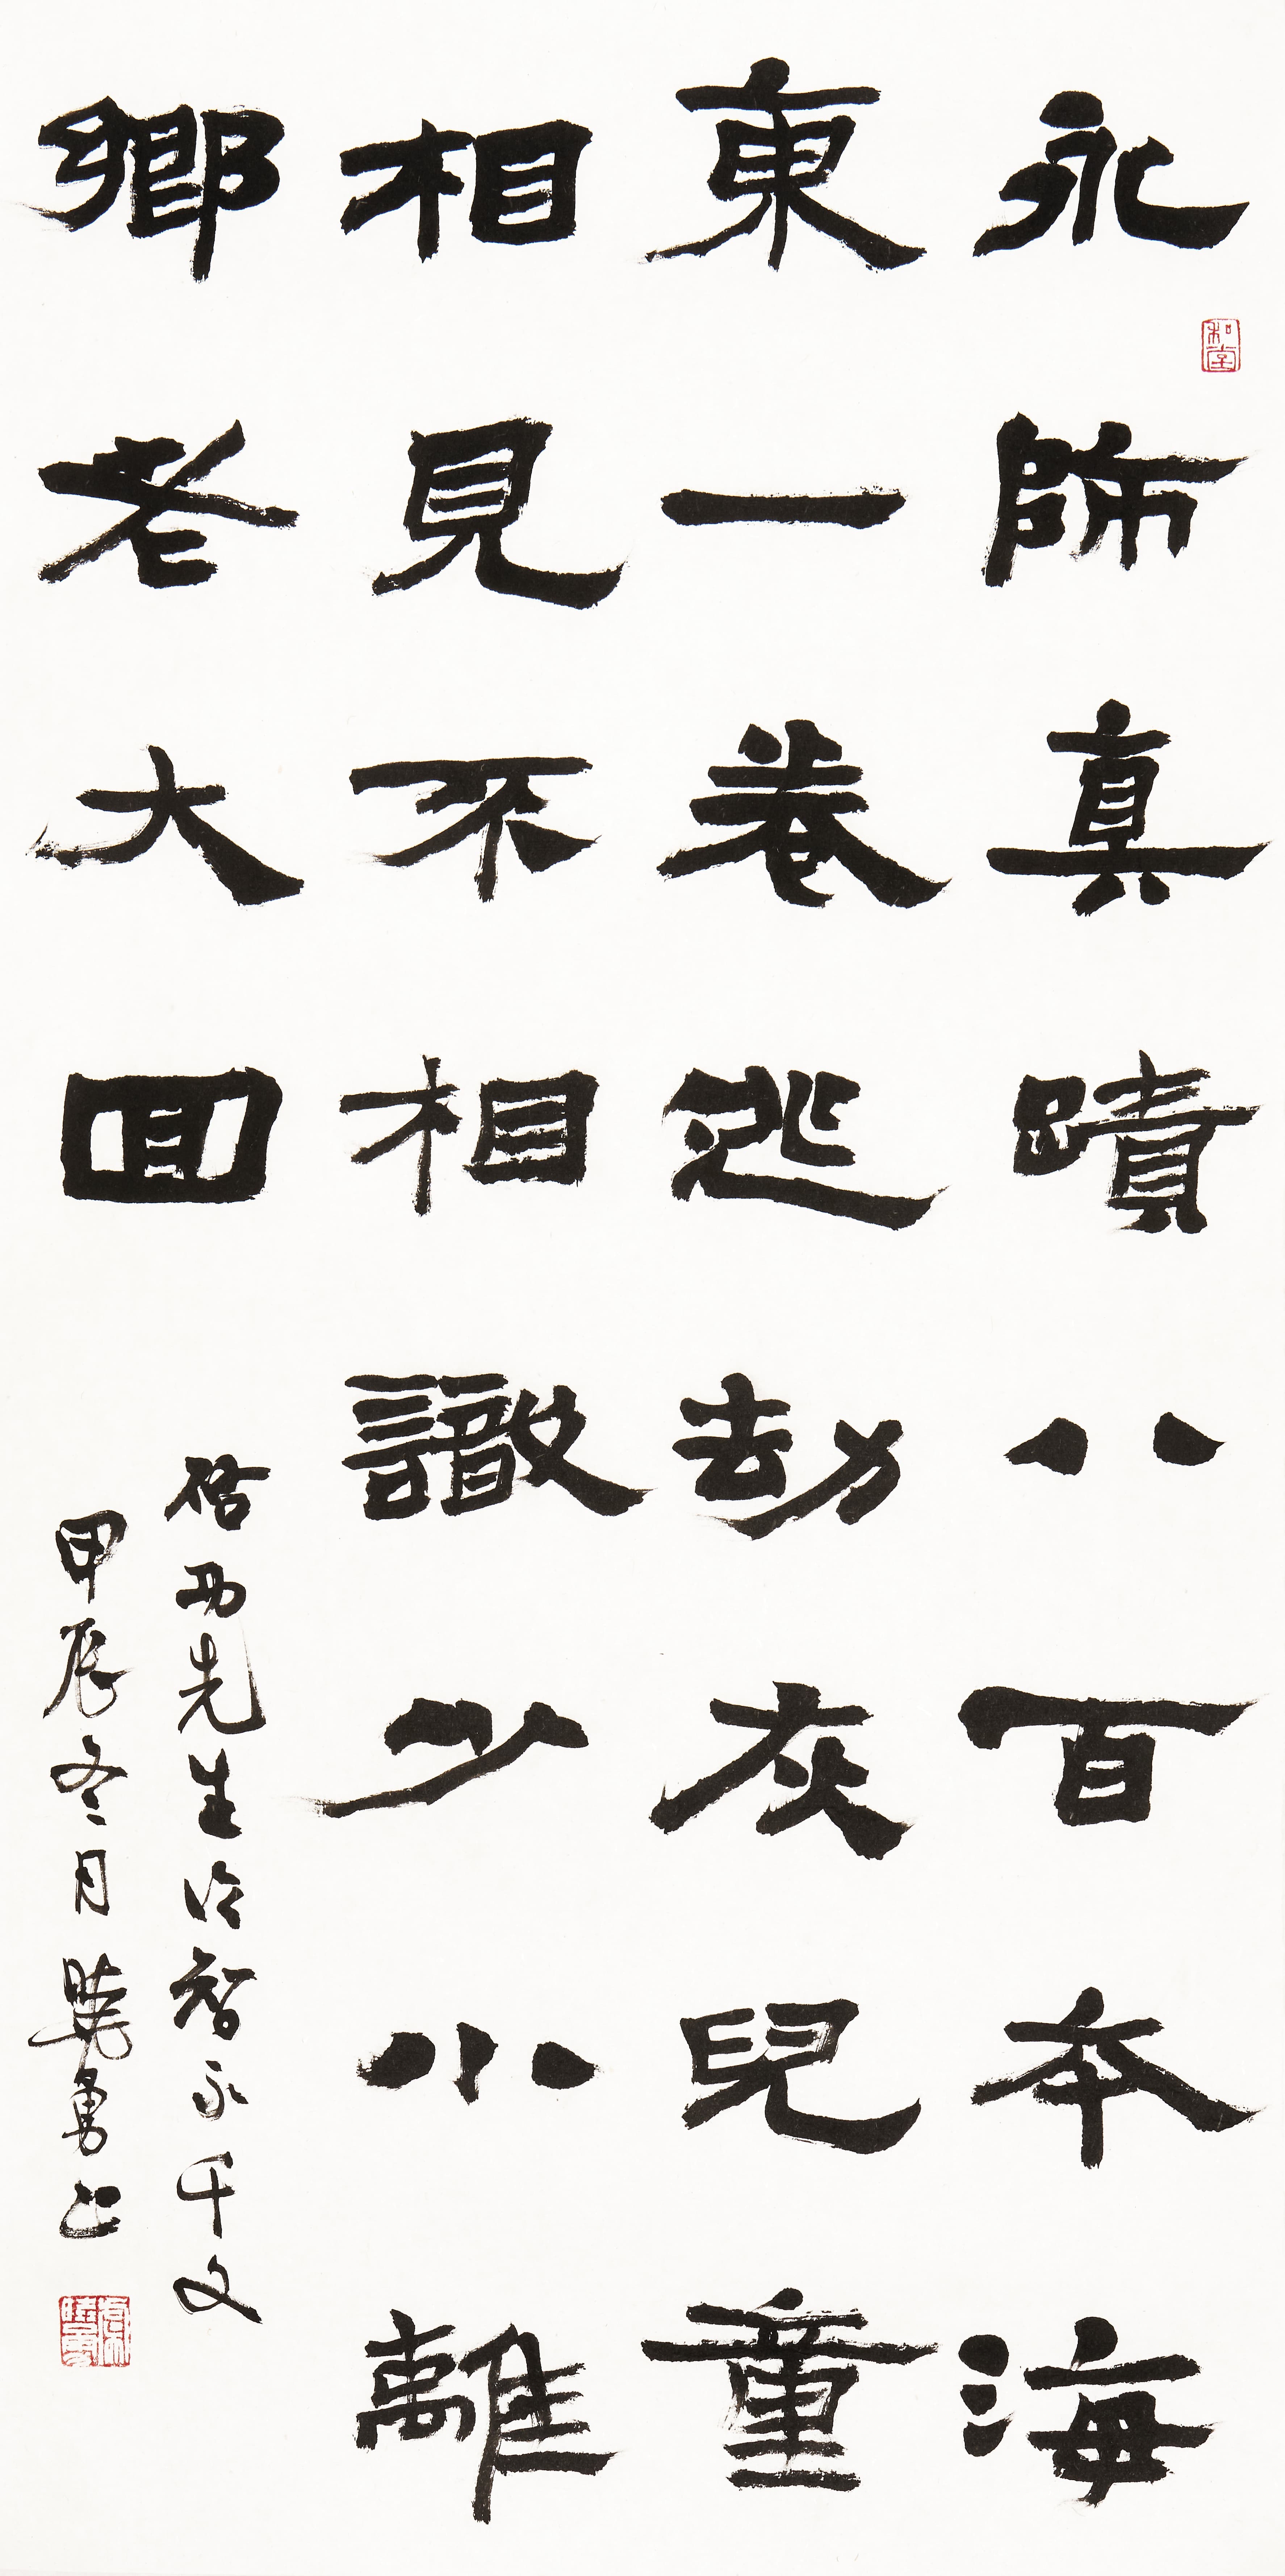 永師真蹟八百本海
東一卷逃劫灰兒童
相見不相識少小離
鄉老大回
啓功先生論智永千文
甲辰冬月曉勇書
和堂